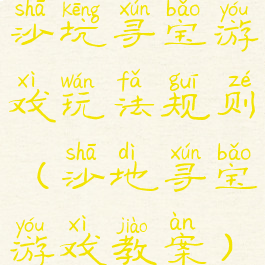 shā kēng xún bǎo yóu
沙坑寻宝游
xì wán fǎ guī zé
戏玩法规则
shā dì xún bǎo
（沙地寻宝
yóu xì jiào àn
游戏教案）